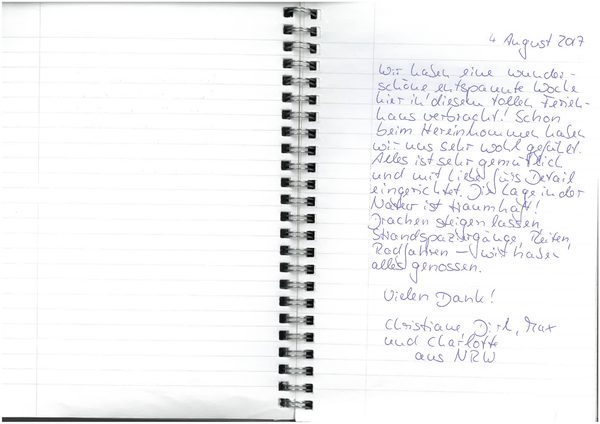 4 August 2017
Wir haben eine wunder-
schöne entspannte Woche
hier in diesem tollen Ferien-
haus verbracht! Schon
beim Hereinkommen haben
wir uns sehr wohl gefühlt.
Alles ist sehr gemütlich
und mit Liebe fürs Detail
eingerichtet. Die Lage in der
Natur ist traumhaft!
Drachen steigen lassen,
Strandspaziergänge, Reiten,
Radfahren – wir haben
alles genossen.
Vielen Dank!
Christiane, Dirk, Max
und Charlotte
aus NRW